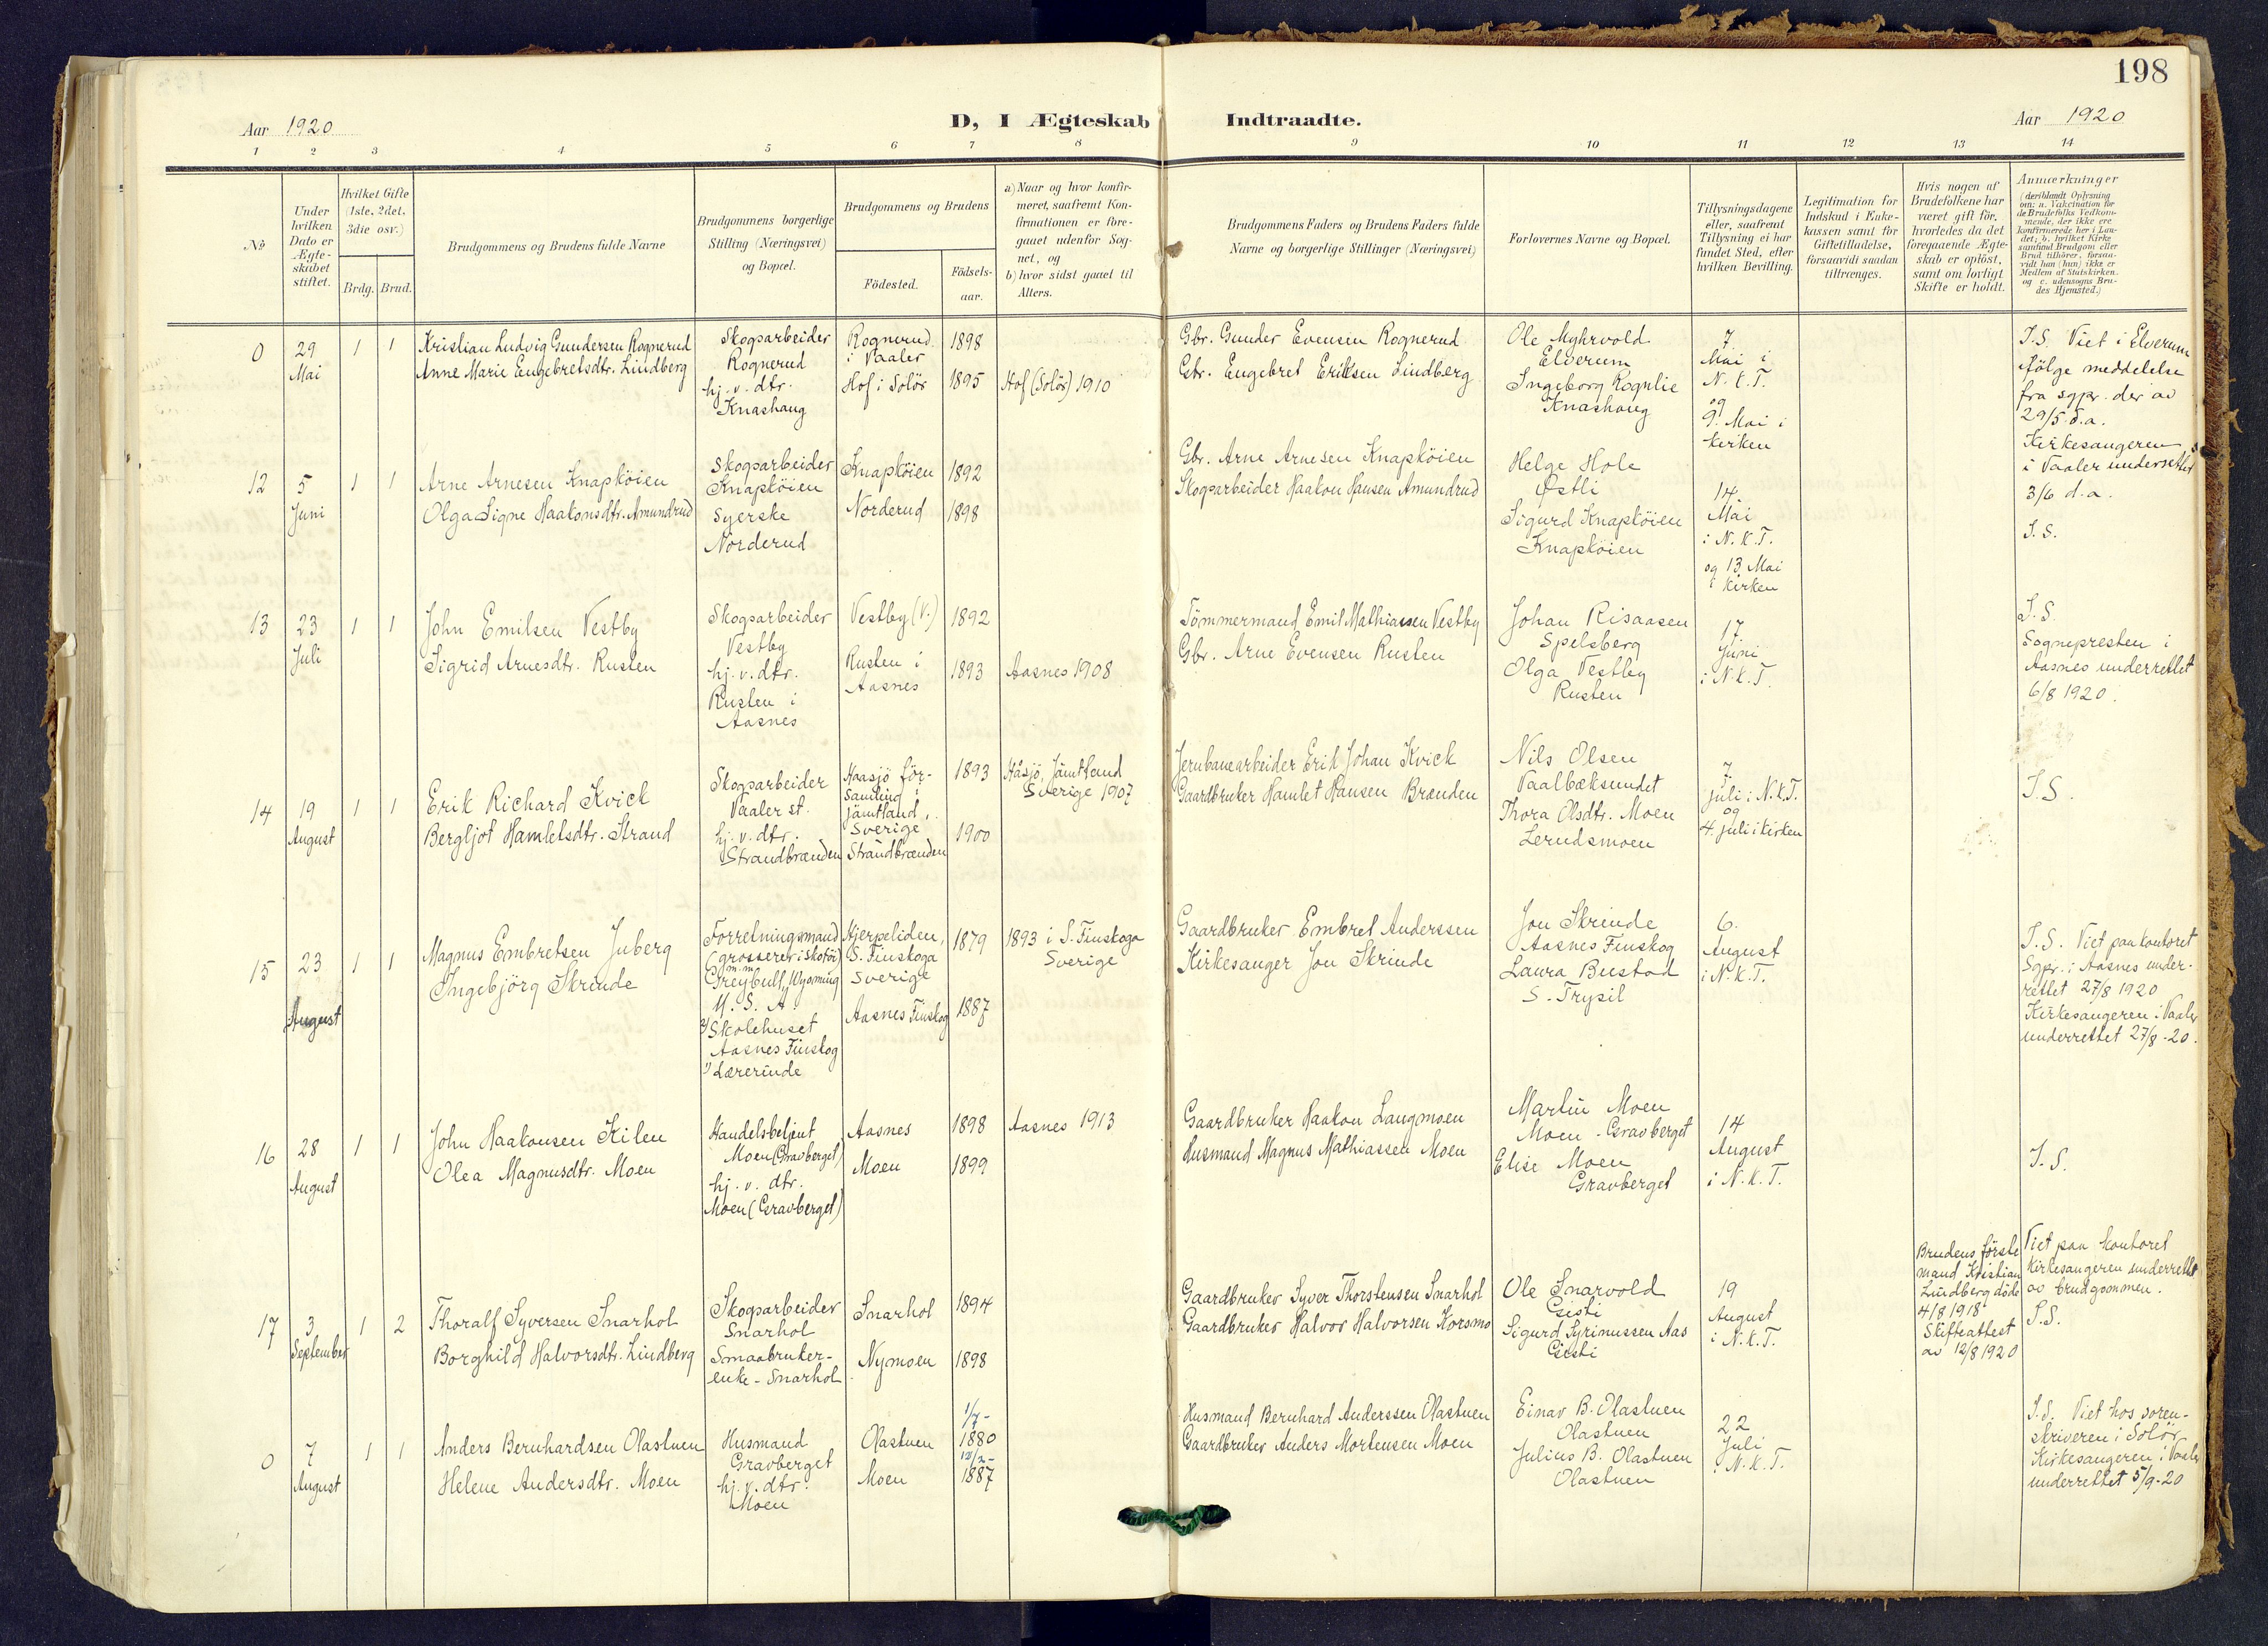 198
Aar 1920
D, I Ægteskab Indtraadte.
Aar 1920
1 2 3 4 5 6 7 8 9 10 11 12 13 14
No
Under
hvilken
Dato er
Ægte-
skabet
stiftet.
Hvilket Gifte
(1ste, 2det,
3die osv.)
Brdg. Brud.
Brudgommens og Brudens fulde Navne
Brudgommens borgerlige
Stilling (Næringsvei)
og Bopæl.
Brudgommens og Brudens
Fødested.
Fødsels-
aar.
a) Naar og hvor konfir-
meret, saafremt Kon-
firmationen er fore-
gaaet udenfor Sog-
net, og
b) hvor sidst gaaet til
Alters.
Brudgommens Faders og Brudens Faders fulde
Navne og borgerlige Stillinger (Næringsvei)
Forlovernes Navne og Bopæl.
Tillysningsdagene
eller, saafremt
Tillysning ei har
fundet Sted, efter
hvilken Bevilling.
Legitimation for
Indskud i Enke-
kassen samt for
Giftetilladelse,
forsaavidt saadan
tiltrænges.
Hvis nogen af
Brudefolkene har
været gift før,
hvorledes da det
foregaaende Ægte-
skab er opløst,
samt om lovligt
Skifte er holdt.
Anmærkninger
(deriblandt Oplysning
om: a. Vakcination for
de Brudefolks Vedkom-
mende, der ikke ere
konfirmerede her i Lan-
det; b. hvilket Kirke
samfund Brudgom eller
Brud tilhører, forsaa-
vidt han (hun) ikke er
Medlem af Statskirken.
og c. udensogns Bru-
des Hjemsted.)
0
29
Mai
1 1
Kristian Ludvig Gundersen Rognerud
Anne Marie Engebretsdtr. Lindberg
Skogsarbeider
Rognerud
hj. v. dtr.
Knashaug
Rognerud
i Vaaler
Hof i Solör
1898
1895
Hof (Solör) 1910
Gbr. Gunder Evensen Rognerud
Gbr. Engebret Eriksen Lindberg
Ole Myhrvold
Elverum
Ingeborg Rognlie
Knashaug
7.
Mai i
N. K. T.
og
9. Mai i
kirken
I. S. Viet i Elverum
ifölge meddelelse
fra sgpr. der av
29/5 d.a.
Kirkesangeren
i Vaaler underrettet
3/6 d.a.
12
5
Juni
1 1
Arne Arnesen Knapköien
Olga Signe Haakonsdtr. Amundrud
Skogsarbeider
Knapköien
Syerske
Norderud
Knapköien
Norderud
1892
1898
Gbr. Arne Arnesen Knapköien
Skogsarbeider Haakon Hansen Amundrud
Helge Hole
Østli
Sigurd Knapköien
Knapköien
14
Mai
i N. K. T.
og 13 Mai
i kirken
I. S.
13
23
Juli
1 1
John Emilsen Vestby
Sigrid Arnesdtr. Rusten
Skogsarbeider
Vestby
hj. v. dtr.
Rusten i
Aasnes
Vestby (V.)
Rusten i
Aasnes
1892
1893
Aasnes 1908
Tömmermand Emil Mathiassen Vestby
Gbr. Arne Evensen Rusten
Johan Risaasen
Spelsberg
Olga Vestby
Rusten
17
Juni
i N. K. T.
I. S.
Sognepresten i
Aasnes underrettet
6/8 1920.
14
19
August
1 1
Erik Richard Kvick
Bergljot Hamletsdtr. Strand
Skogsarbeider
Vaaler st.
hj. v. dtr.
Strandbrænden
Haasjö för-
samling i
Jämtland,
Sverige
Strandbrænden
1893
1900
Håsjö, Jämtland
Sverige 1907
Jernbanearbeider Erik Johan Kvick
Gaardbruker Hamlet Hansen Brænden
Nils Olsen
Vaalbæksundet
Thora Olsdtr. Moen
Lerudsmoen
7.
juli i N. K. T.
og
4. juli i kirken
I. S.
15
23
August
1 1
Magnus Embretsen Juberg
Ingebjörg Skrinde
Forretningsmand
(grosserer i skotöi)
m.m.
Greybull, Wyoming
U. S. A.
2) Skolehuset
Aasnes Finskog
1) Lærerinde
Hjerpeliden,
S. Finskoga
Sverige
Aasnes Finskog
1879
1887
1893 i S. Finskoga
Sverige
Gaardbruker Embret Anderssen
Kirkesanger Jon Skrinde
Jon Skrinde
Aasnes Finskog
Laura Bustad
S. Trysil
6.
August
i N. K. T.
I. S. Viet paa kontoret
Sgpr. i Aasnes under-
rettet 27/8 1920
Kirkesangeren i Vaaler
underrettet 27/8 -20.
16
28
August
1 1
John Haakonsen Kilen
Olea Magnusdtr. Moen
Handelsbetjent
Moen (Gravberget)
hj. v. dtr.
Moen (Gravberget)
Aasnes
Moen
1898
1899
Aasnes 1913
Gaardbruker Haakon Langmoen
Husmand Magnus Mathiassen Moen
Martin Moen
Moen - Gravberget
Elise Moen
Gravberget
14
August
i N. K. T.
I. S.
17
3
September
1 2
Thoralf Syversen Snarhol
Borghild Halvorsdtr. Lindberg
Skogsarbeider
Snarhol
Smaabruker-
enke - Snarhol
Snarhol
Nymoen
1894
1898
Gaardbruker Syver Thorstensen Snarhol
Gaardbruker Halvor Halvorsen Korsmo
Ole Snarvold
Sigurd Syrinussen Aas
19
August
i N. K. T.
Brudens förste
mand Kristian
Lindberg døde
4/8 1918
Skifteattest
av 12/8 1920
Viet paa kontoret
Kirkesangeren underrettet
av brudgommen.
I. S.
0
7
August
1 1
Anders Bernhardsen Olastuen
Helene Andersdtr. Moen
Husmand
Gravberget
hj. v. dtr.
Moen
Olastuen
Moen
1/7 -
1880
12/2 -
1887
Husmand Bernhard Anderssen Olastuen
Gaardbruker Anders Mortensen Moen
Einar B. Olastuen
Olastuen
Julius B. Olastuen
Olastuen
22
Juli
i N. K. T.
I. S. Viet hos soren-
skriveren i Solør
Kirkesangeren i Vaaler
underrettet 5/9 -20